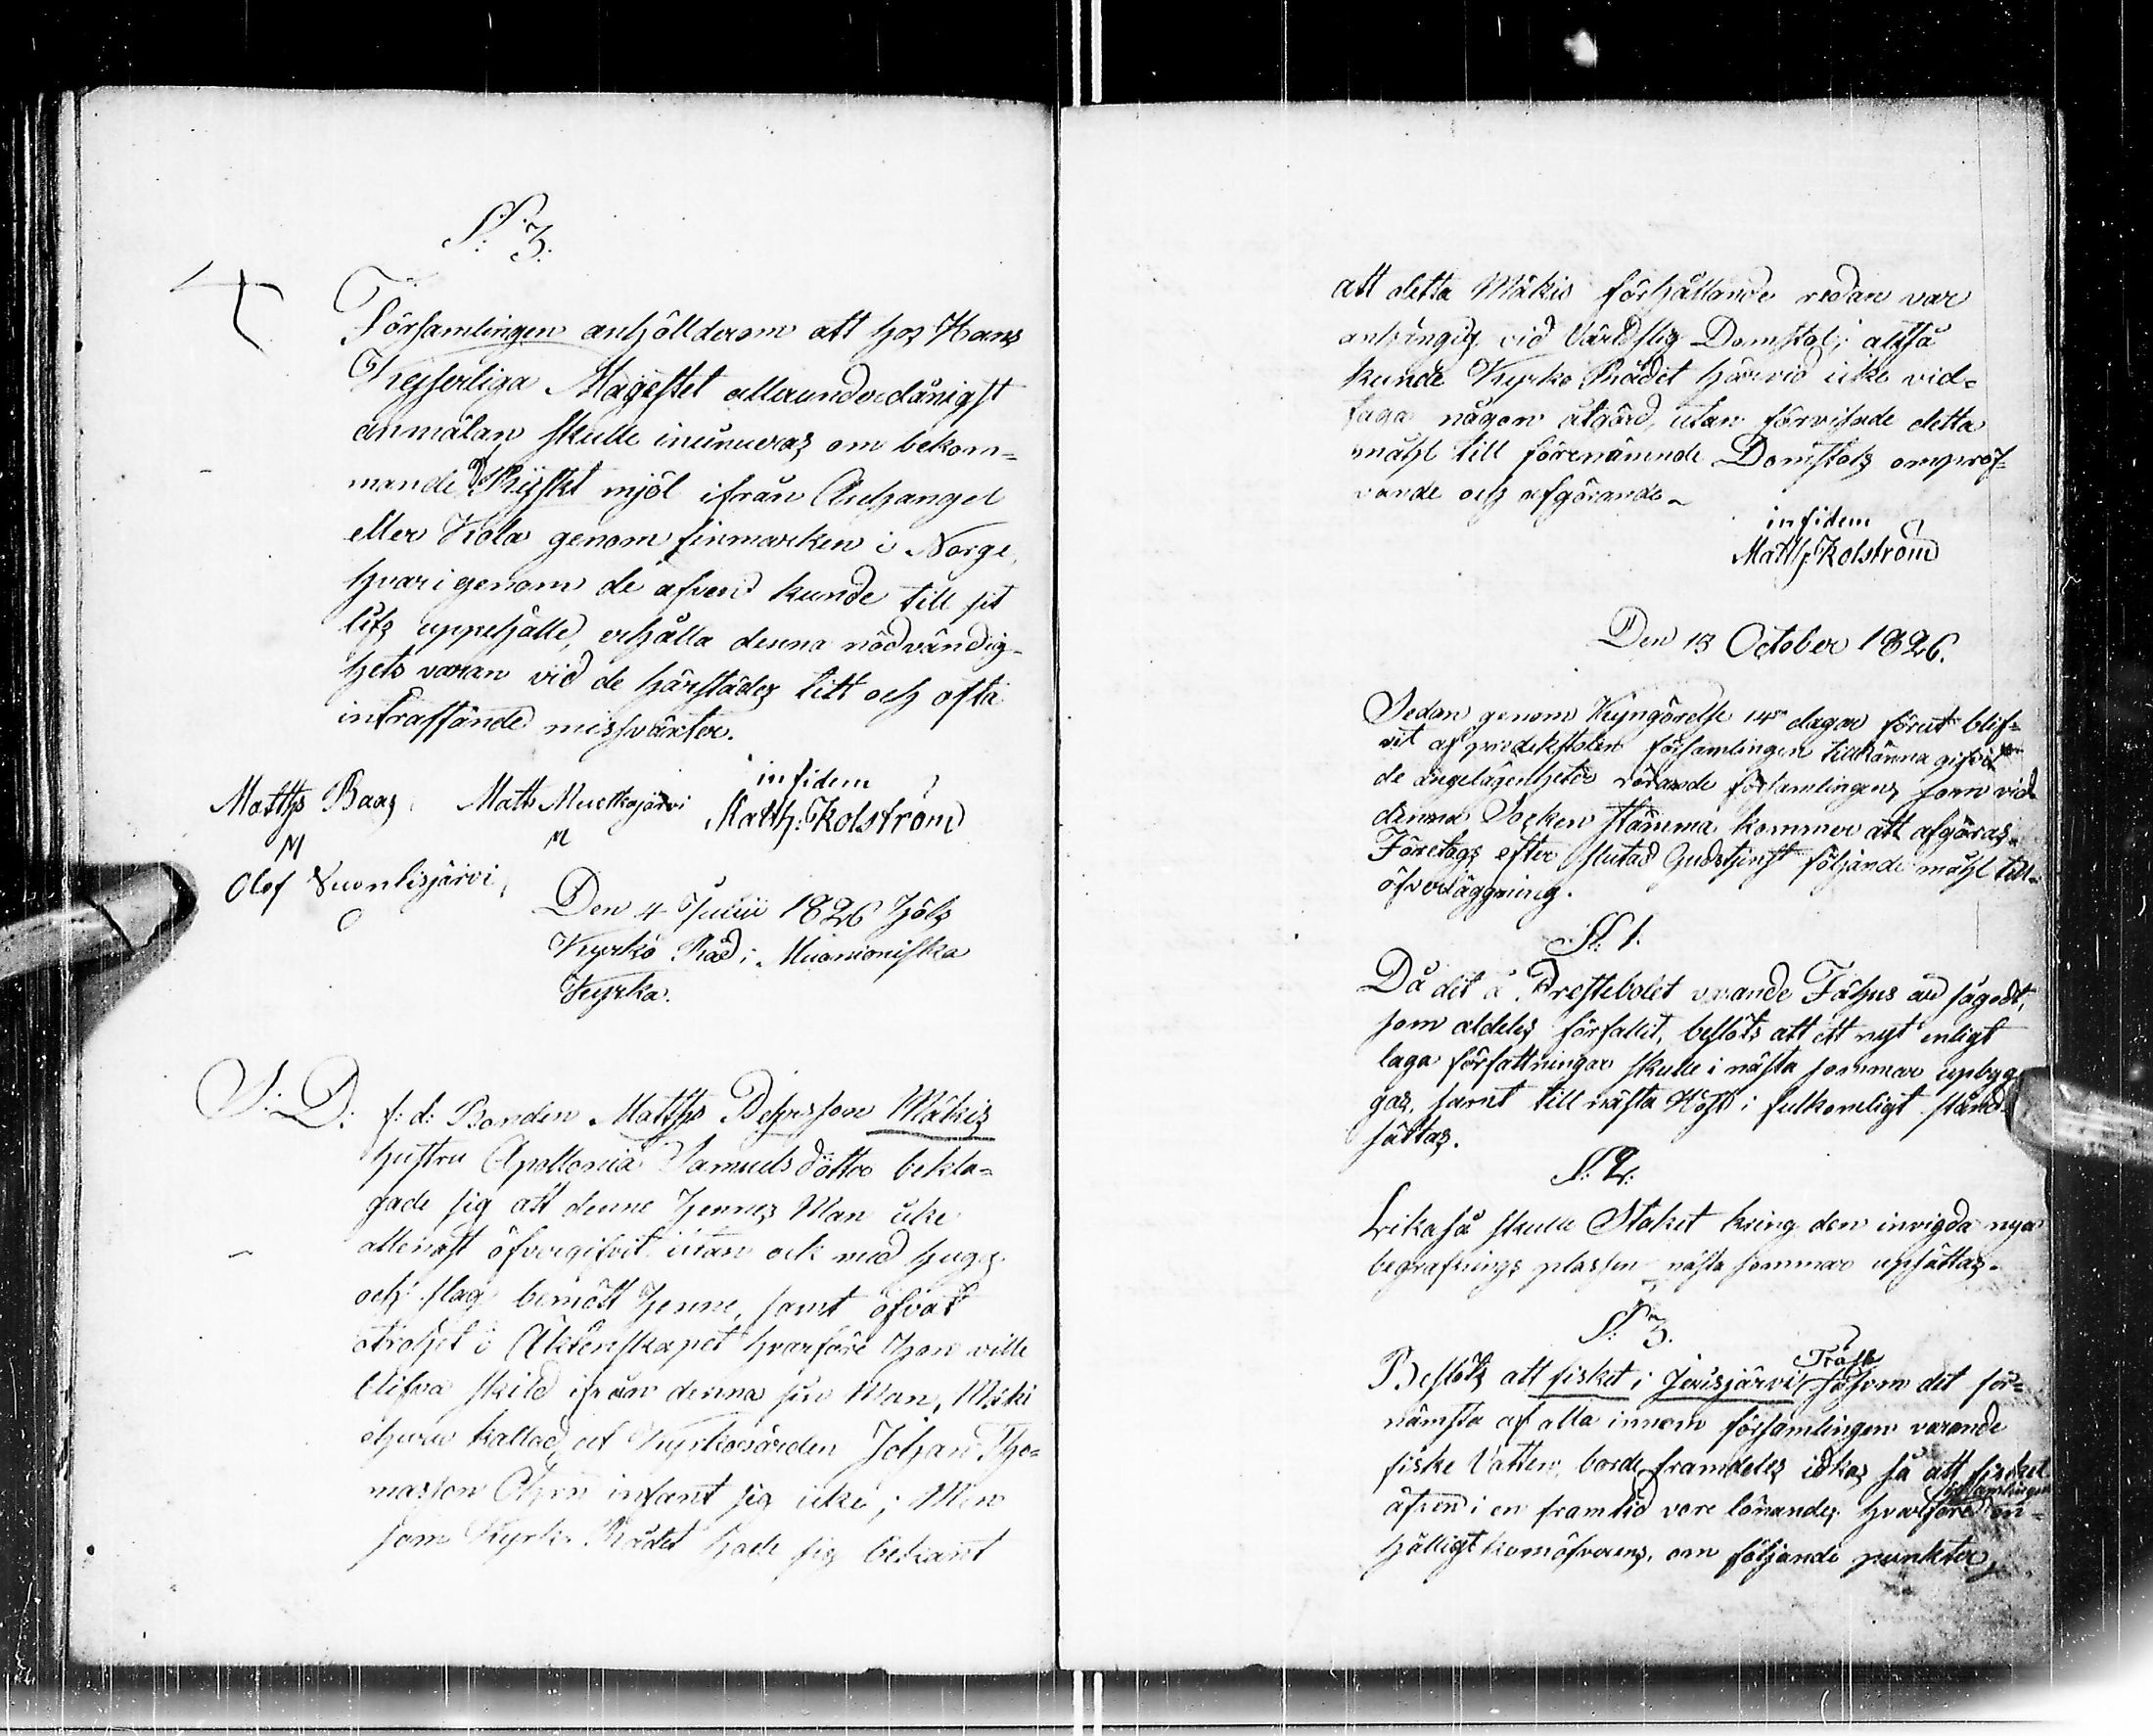 S: 3.
Församlingen anhölldeom att hos Hans
Kejserliga Mayestet allraunderdånigst
anmälan skulle insinueras om bekom=
mande Ryskt mjöl ifrån Archangel
eller Kola genom finmarken i Norge,
hvarigenom de äfven kunde till sit
lifs uppehälle, erhålla denna nödvändig-
hets varan vid de härstädes titt och ofta
inträffande missväxter.
in fidem
Matths Baas Maths Muotkajärvi Matth: Kolström
M M
Olof Vuontisjärvi,
O
Den 4 Julii 1826 höls
Kyrko Råd i Muonioniska
Kyrka.
S: D: f: d: Bonden Matths Pehrsson Mäkis
hustru Apollonia Samuels dotter bekla=
gade sig att denne hennes Man icke
allenast öfvergifvit utan ock med hugg
och slag bemött henne, samt öfvat
otrohet i Äktenskapet hvarföre hon ville
blifva skild ifrån denna sin Man, Mäki
ehuru kallad af Kyrkovärden Johan Tho=
masson infant sig icke; Men
som Kyrko Rådet hade sig bekant
att detta Mäkis förhållande redan var
anhängig vid Värdslig Domstol; altså
kunde Kyrko Rådet härvid icke vid=
taga någon åtgärd, utan förvisade detta
måhl till förenämnde Domstols ompröf-
vande och afgörande.
in fidem
Matth: Kolström
Den 13 October 1826.
Sedan genom Kungörelse 14 dagar förut blif=
vit af predikstolen församlingen tillkänna gifvit
de angelägenheter rörande församlingen, som vid
denna Socken stämma kommer att afgöras.
Företogs efter slutad Gudstjenst följande måhl till
öfverläggning.
S: 1.
Då det å Prestebolet varande Fähus är sågodt,
som aldeles förfallit, beslöts att ett nytt enligt
laga författningar skulle i nästa sommar upbyg
gas, samt till nästa Höst i fulkomligt stånd
sättas.
S: 2.
Likaså skulle Staket kring den invigda nya
begrafnings plassen nästa sommar upsättas.
S: 3.
Träsk
Beslöts att fisket i Jerisjärvi såsom det för=
nämsta af alla innom församlingen varande
fiske Vatten, borde framdeles idkas så att fisket
församlingen
äfven i en framtid vore lönande; hvarföre en=
hälligt komöfverens, om följande punkter,